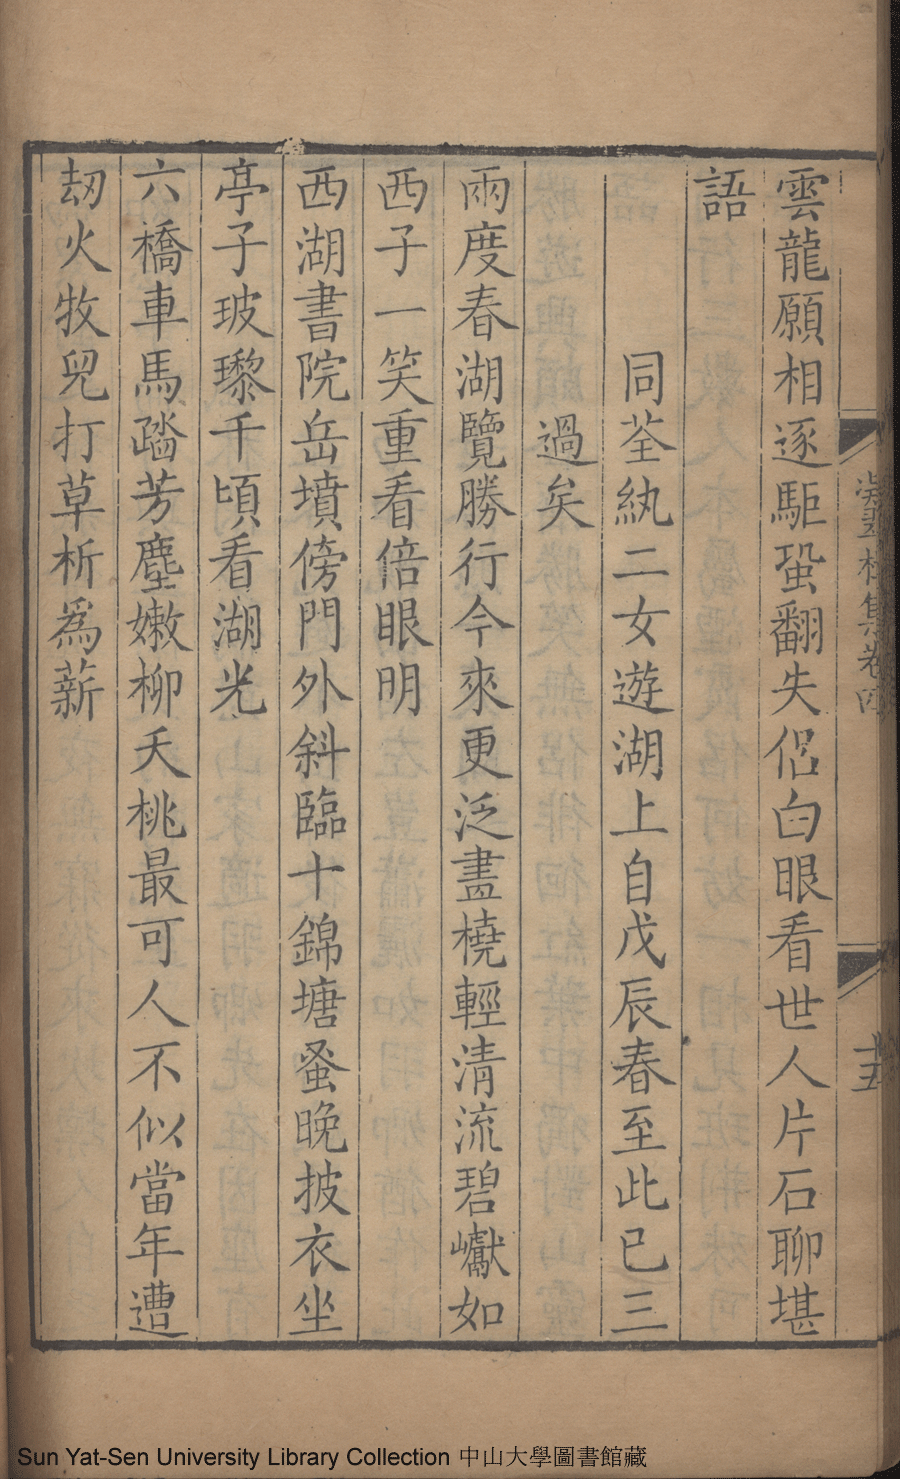 雲龍願相逐駏蛩翻失侶白眼看世人片石聊堪
語
同荃紈二女遊湖上自戊辰春至此已三
過矣
兩度春湖覽勝行今來更泛畫橈輕清流碧巘如
西子一笑重看倍眼明
西湖書院岳墳傍門外斜臨十錦塘蚤晚披衣坐
亭子玻瓈千頃看湖光
六橋車馬踏芳塵嫩柳夭桃最可人不似當年遭
刼火牧兒打草析爲薪
集卷四
十五
Sun Yat-Sen University Library Collection 中山大學圖書館藏